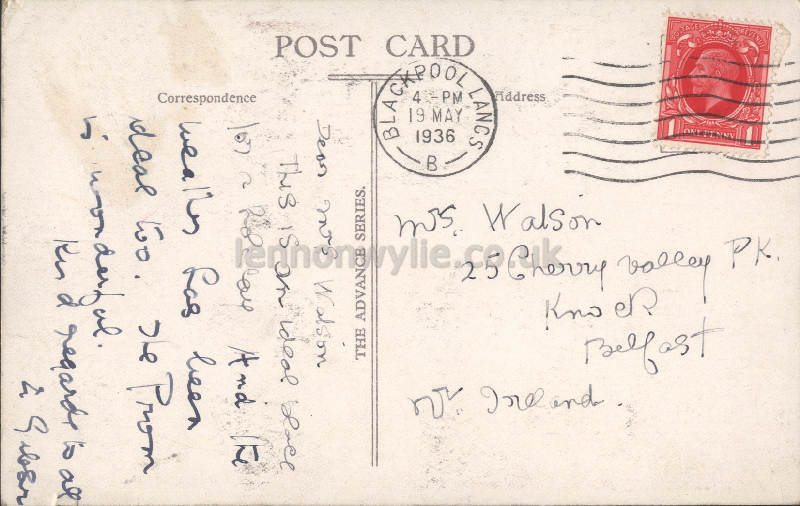 POST CARD
Correspondence
Address
BLACKPOOL LANCS
4 - PM
19 MAY
1936
B
POSTAGE REVENUE
1 ONE PENNY 1
THE ADVANCE SERIES.
lennonwylie.co.uk
Dear Mrs Watson
This is an ideal place
for a holiday And the
weather has been
ideal too. The Prom
is wonderful.
Kind regards to all
Mrs. Watson
25 Cherry valley PK.
Knock
Belfast
Nr. Ireland.